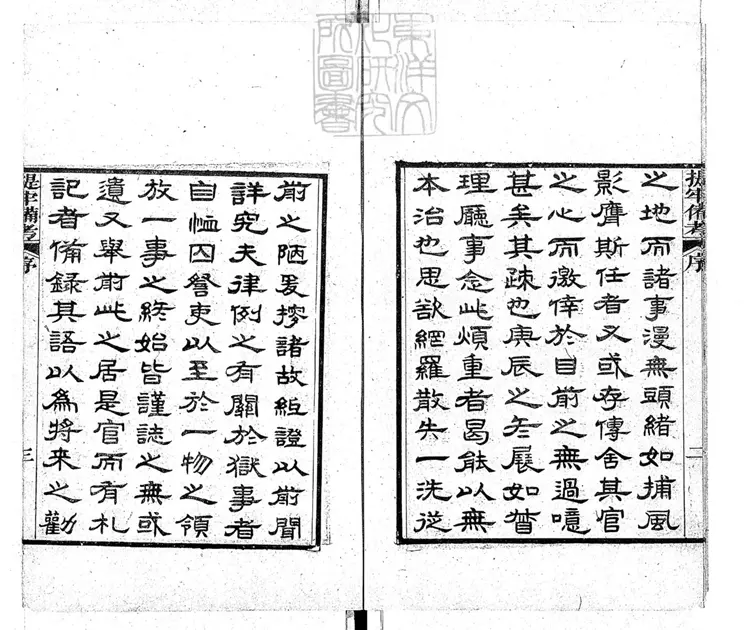 東洋文
化研究
所圖書
提牢備考 序
二
之地而諸事漫無頭緒如捕風
影膺斯任者又或存傳舍其官
之心而徼倖於目前之無過噫
甚矣其疎也庚辰之冬展如督
理廳事念此煩重者曷能以無
本治也思欲網羅散失一洗從
前之陋爰搜諸故紙證以前聞
詳究夫律例之有關於獄事者
自恤囚督吏以至於一物之領
放一事之終始皆謹誌之無或
遺又舉前此之居是官而有札
記者備錄其語以為將來之勸
提牢備考 序
三